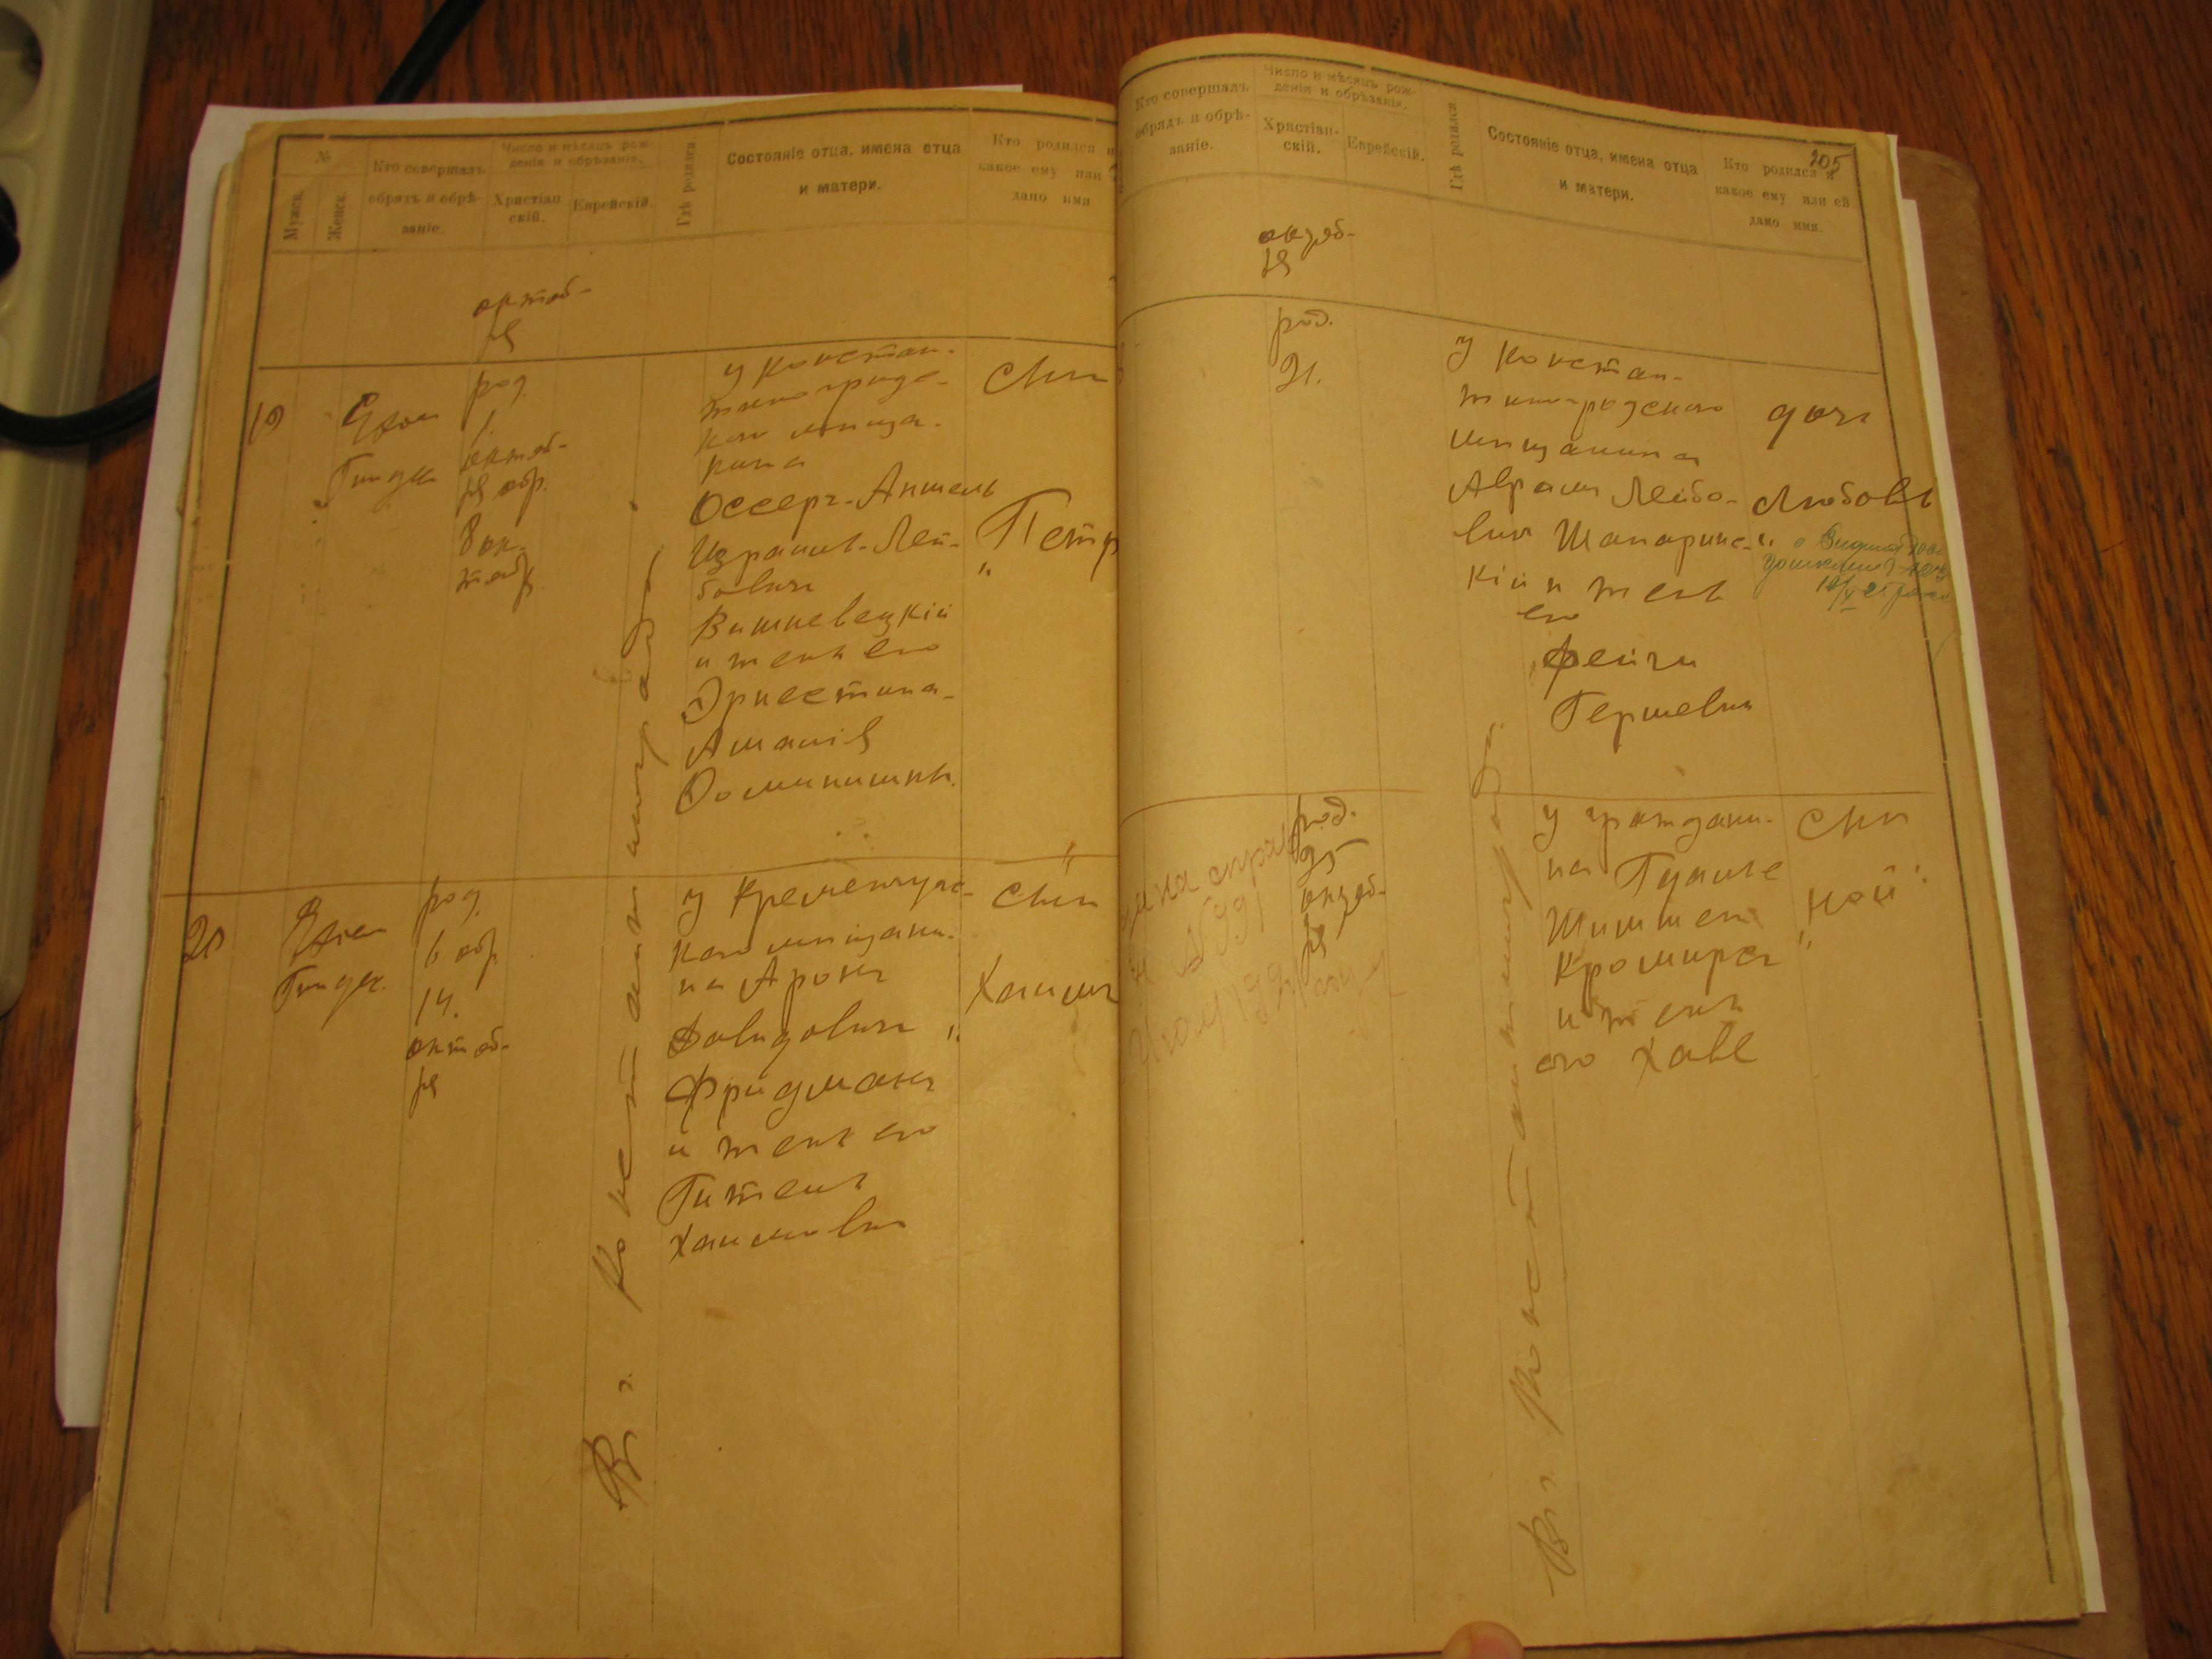 №
Мужск.
Женск.
Кто совершалъ
обрядъ и обрѣ-
заніе.
Число и мѣсяцъ рож-
денія и обрѣзанія.
Христіан
скій.
Еврейскій.
Гдѣ родился
Состояніе отца, имена отца
и матери.
Кто родился и
какое ему или
дано имя
октяб-
ря
19
Гинде
род.
1.
октяб-
ря обр.
8 ок-
тябр.
у констан-
тиноградс-
каго мѣща-
нина
Оссеръ-Аншель
Израилъ-Лей-
бовичъ
Вишневецкій
и жены его
Эрнестина-
Амалія
сынъ
"Петръ
20
Гинде.
род.
6 обр
14.
октяб-
ря
В г. Константиноградѣ
у Кременчугс-
каго мѣщани-
на Арона
Давидовичъ
Фридманъ
и жены его
Гитель
Хаимовна
сынъ
"Хаимъ
205
Кто совершалъ
обрядъ и обрѣ-
заніе.
Число и мѣсяцъ рож-
денія и обрѣзанія.
Христіан-
скій.
Еврейскій.
Гдѣ родился.
Состояніе отца, имена отца
и матери.
Кто родился и
какое ему или ей
дано имя.
октяб-
ря
род.
21.
у констан-
тиноградскаго
мѣщанина
Аврамъ Лейбо-
вичъ Шапаринс-
кій и жены
его
Фейги
Гершевны
дочь
"Любовь
род.
25
октяб-
ря
В г. Константиноградѣ
у граждани-
на
и жены
его Хаве
сынъ